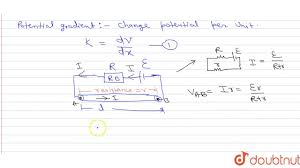 Potential gradient:- Change potential per unit.
K = dV/dx ①
I R E
RB
resistance = r
A I B
l
R E
r
I = E/(R+r)
V_AB = Ir = Er/(R+r)
doubtnut